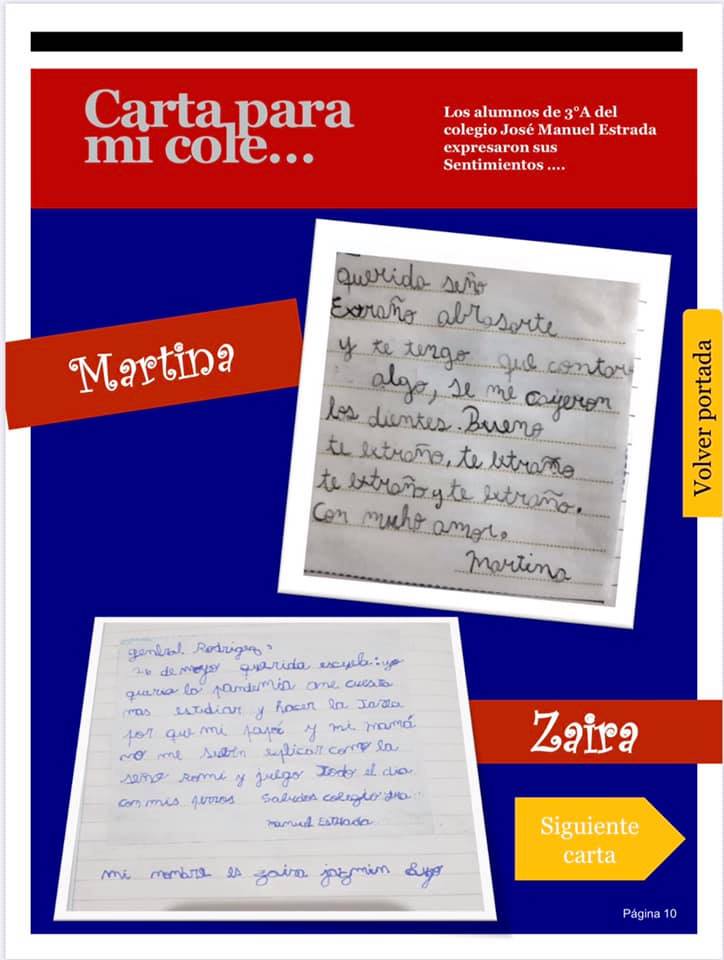 Carta para
mi cole...
Los alumnos de 3°A del
colegio José Manuel Estrada
expresaron sus
Sentimientos ....
Martina
querida seño
Extraño abrasarte
y te tengo que contar
algo, se me cayeron
los dientes. Bueno
te extraño, te extraño
te extraño y te extraño.
Con mucho amor.
Martina
Volver portada
general Rodriguez,
26 de mayo querida escuela: yo
la pandemia me cuesta
mas estudiar y hacer la
por que mi papá y mi mamá
no me explicar como la
seño romi y juego todo el dia
con mis perros Saludos colegio
manuel Estrada
mi nombre es zaira jazmin
Zaira
Siguiente
carta
Página 10